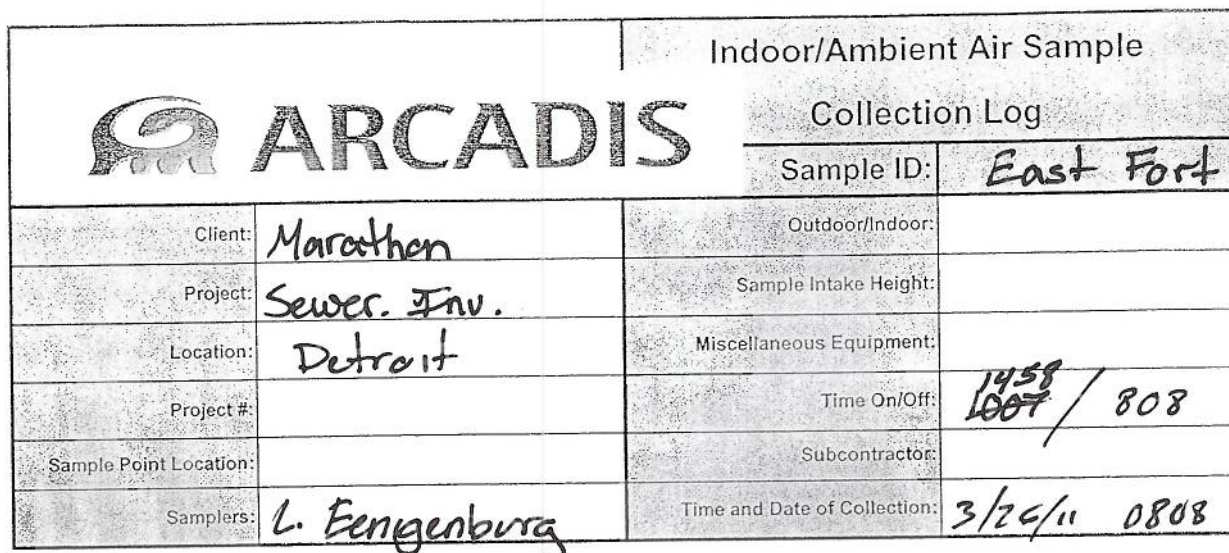 Indoor/Ambient Air Sample
Collection Log
ARCADIS
Sample ID: East Fort
Client: Marathon
Outdoor/Indoor:
Project: Sewer. Inv.
Sample Intake Height:
Location: Detroit
Miscellaneous Equipment:
Project #:
1458
Time On/Off: 1007 / 808
Sample Point Location:
Subcontractor:
Samplers: L. Eenigenburg
Time and Date of Collection: 3/26/11 0808